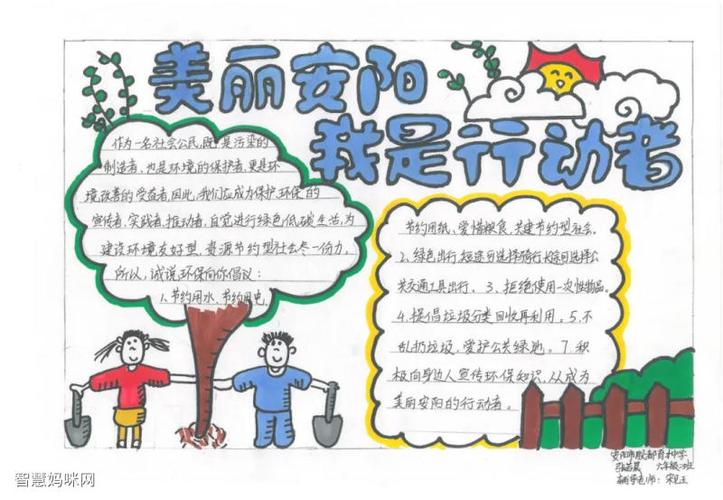 美丽安阳
我是行动者
作为一名社会公民,既是污染的
制造者,也是环境的保护者,更是环
境改善的受益者,因此,我们应成为保护环保的
宣传者,实践者,推动者,自觉进行绿色低碳生活,为
建设环境友好型、资源节约型社会尽一份力,
所以,诚说环保向你倡议:
1、节约用水、节约用电、
节约用纸、爱惜粮食、共建节约型社会。
2、绿色出行,短途可选择骑行,长途可选择公
共交通工具出行。3、拒绝使用一次性物品。
4、提倡垃圾分类回收再利用。5、不
乱扔垃圾,爱护公共绿地。7、积
极向身边人宣传环保知识,从成为
美丽安阳的行动者。
安阳市殷都育才中学
六年级 班
辅导老师:
智慧妈咪网